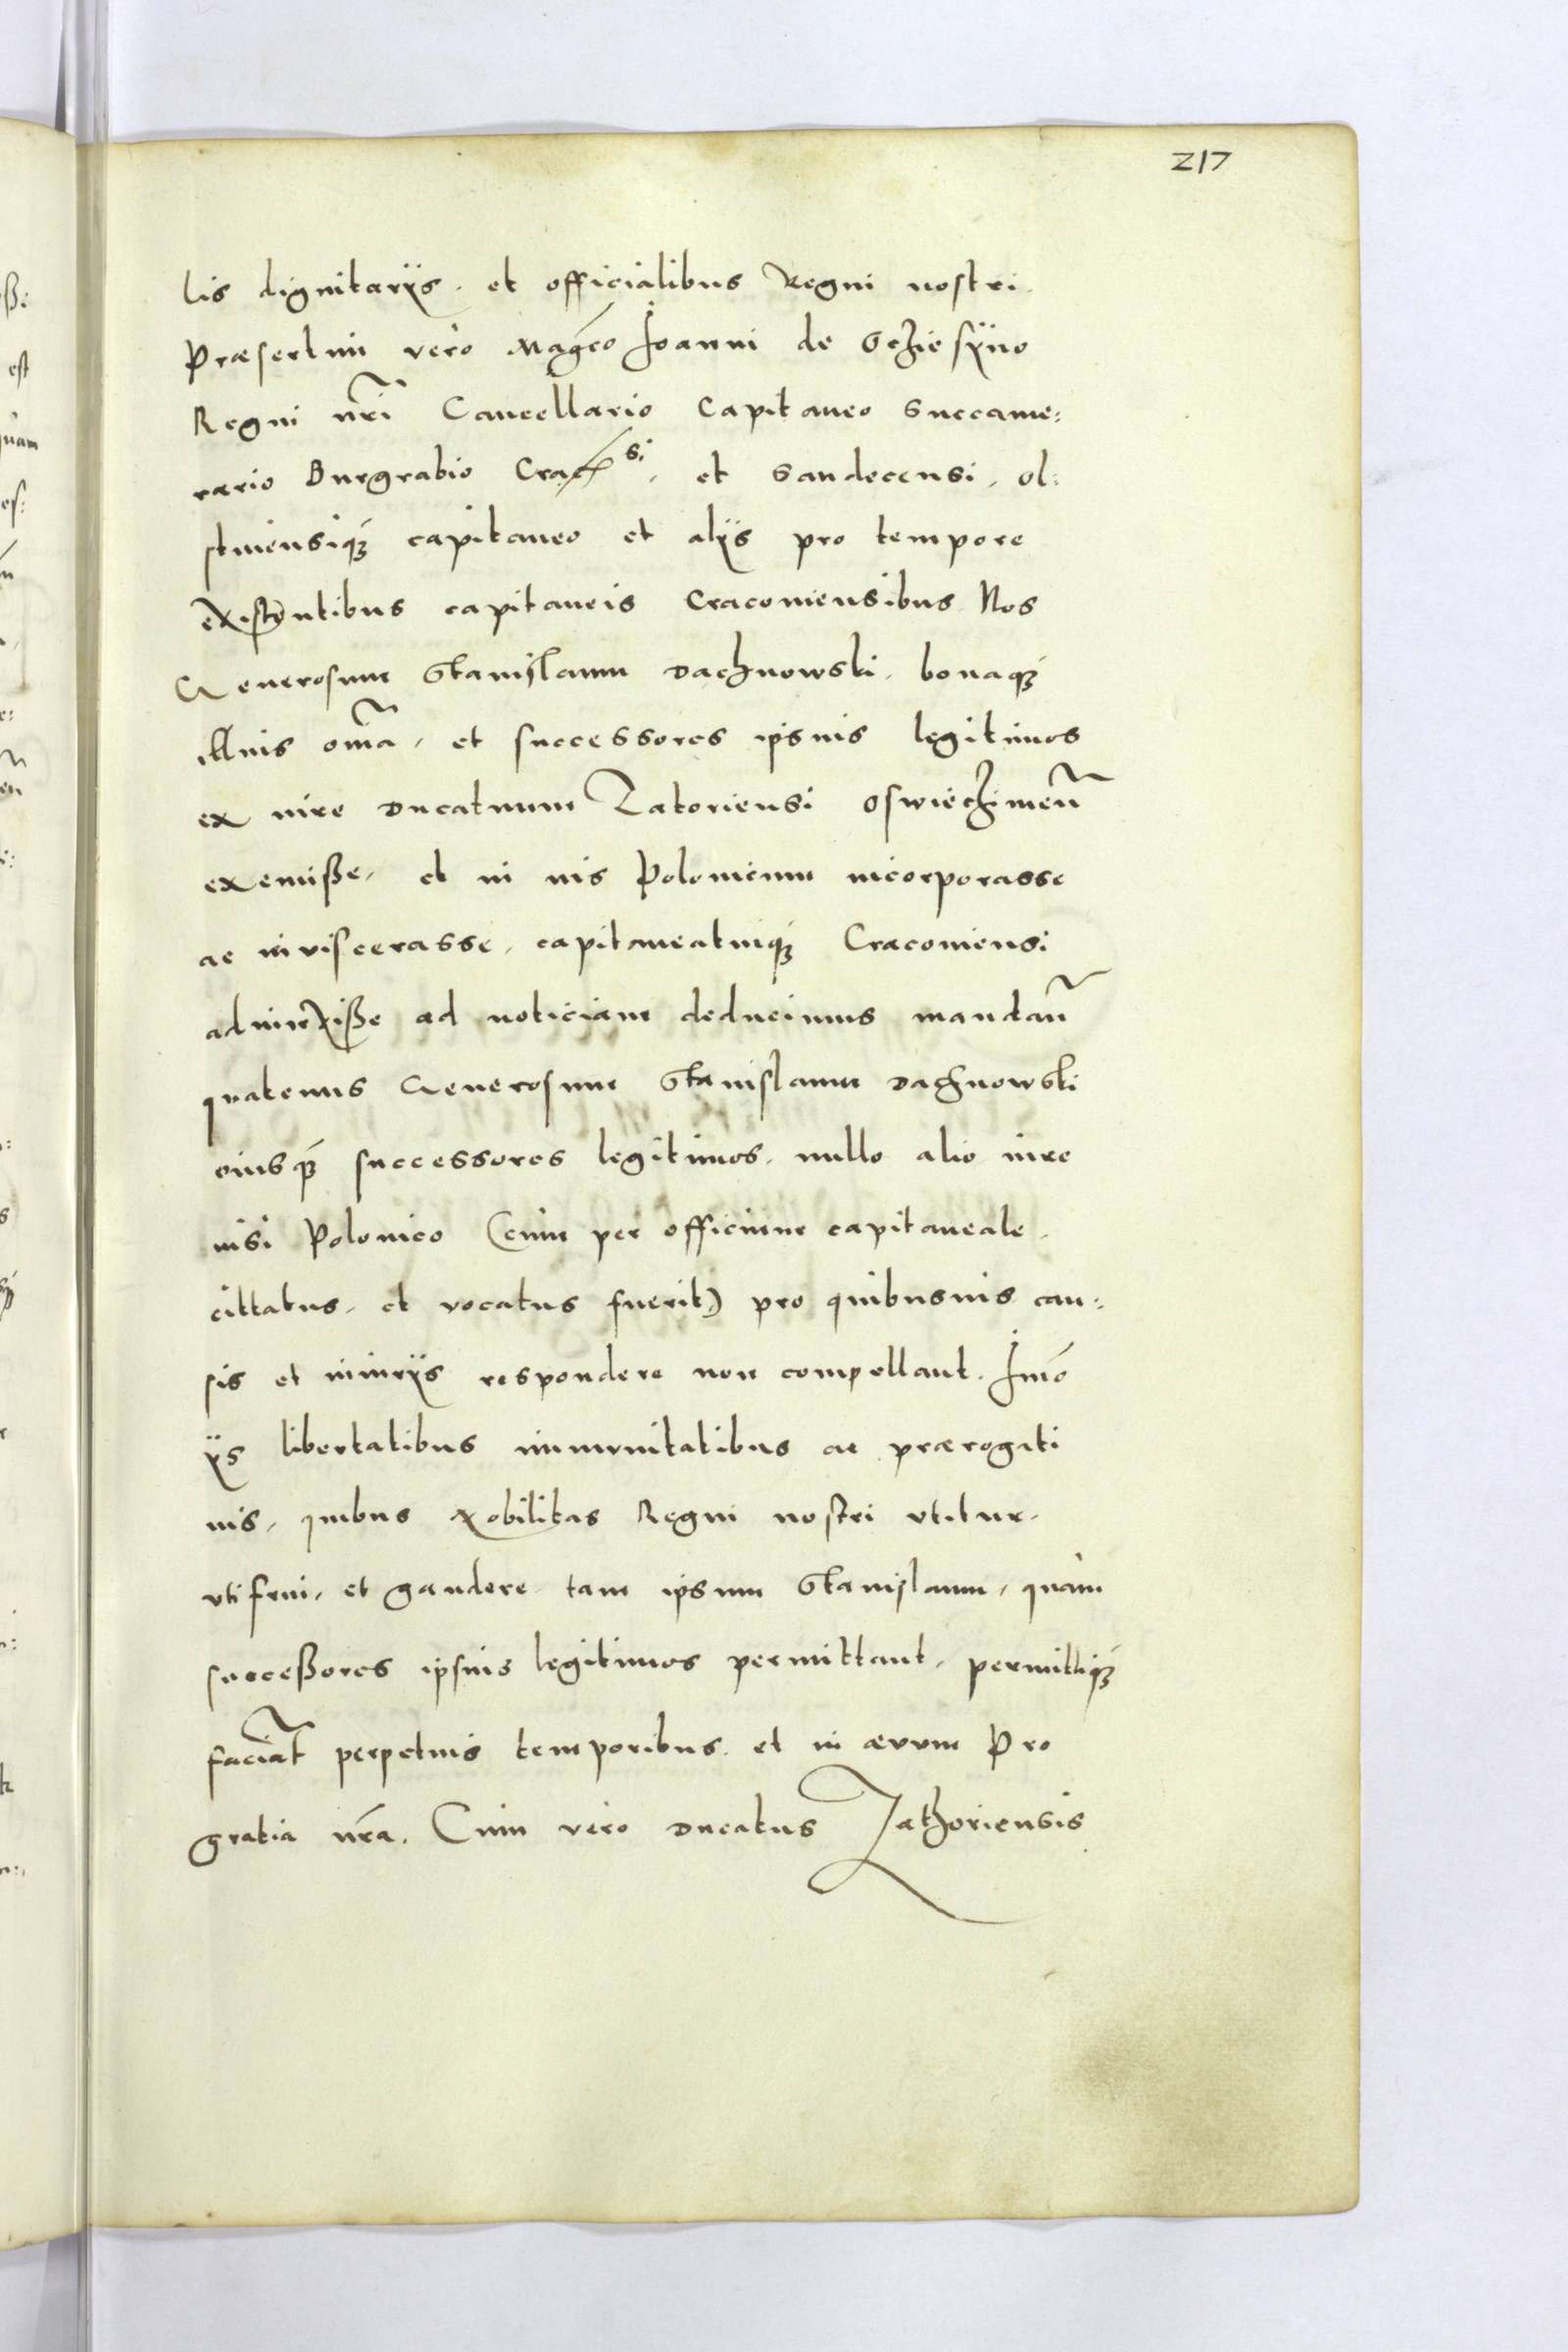 217
lis dignitarijs. et officialibus Regni nostri.
Præsertim vero Magco Joanni de Ocziesÿno
Regni nri Cancellario Capitaneo Succame:
rario Burgrabio Cracsi. et Sandecensi. ol:
stinensiqȝ capitaneo et alijs pro tempore
existentibus capitaneis Cracouiensibus Nos
Generosum Stanislaum Dachnowski. bonaqȝ
illius oma. et successores ipsius legitimos
ex iure Ducatuum Zatoriensi Oswieczimen
exemisse. et in ius Polonicum incorporasse
ac inviscerasse. capitaneatuiqȝ Cracouiensi
adiunxisse ad noticiam deducimus mandan
quatenus Generosum Stanislaum Dachnowski
eiusqȝ successores legitimos. nullo alio iure
nisi Polonico (cum per officium capitaneale.
cittatus. et vocatus fuerit) pro quibusuis cau:
sis et iniurijs respondere non compellant. Imo
ijs libertatibus immunitatibus ac prærogati
uis. quibus Nobilitas Regni nostri vtitur.
vti frui. et gaudere tam ipsum Stanislaum. quàm
successores ipsius legitimos permittant. permittiqȝ
faciat perpetuis temporibus. et in æuum Pro
gratia nra. Cum vero Ducatus Zathoriensis